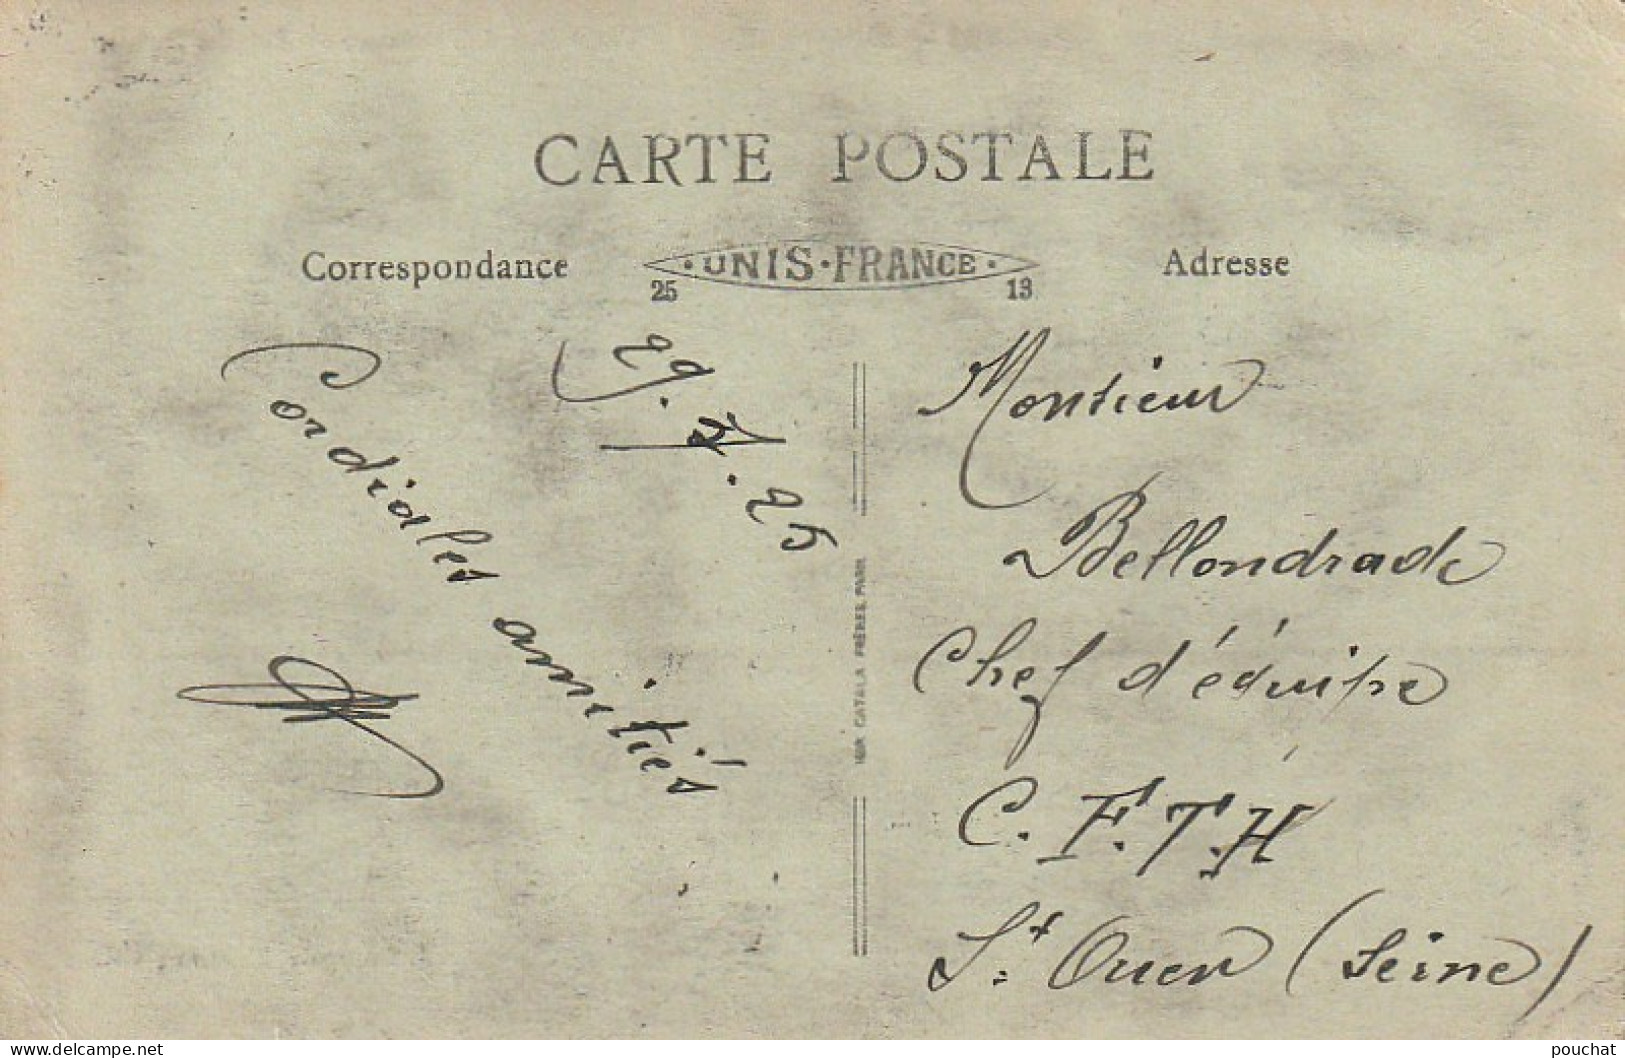 CARTE POSTALE
Correspondance
UNIS·FRANCE
25 13
Adresse
29.7.25
Cordiales amitiés
IMP. CATALA FRÈRES, PARIS
Monsieur
Bellondrade
Chef d'équipe
C.F.T.H
St Ouen (Seine)
www.delcampe.net
pouchat